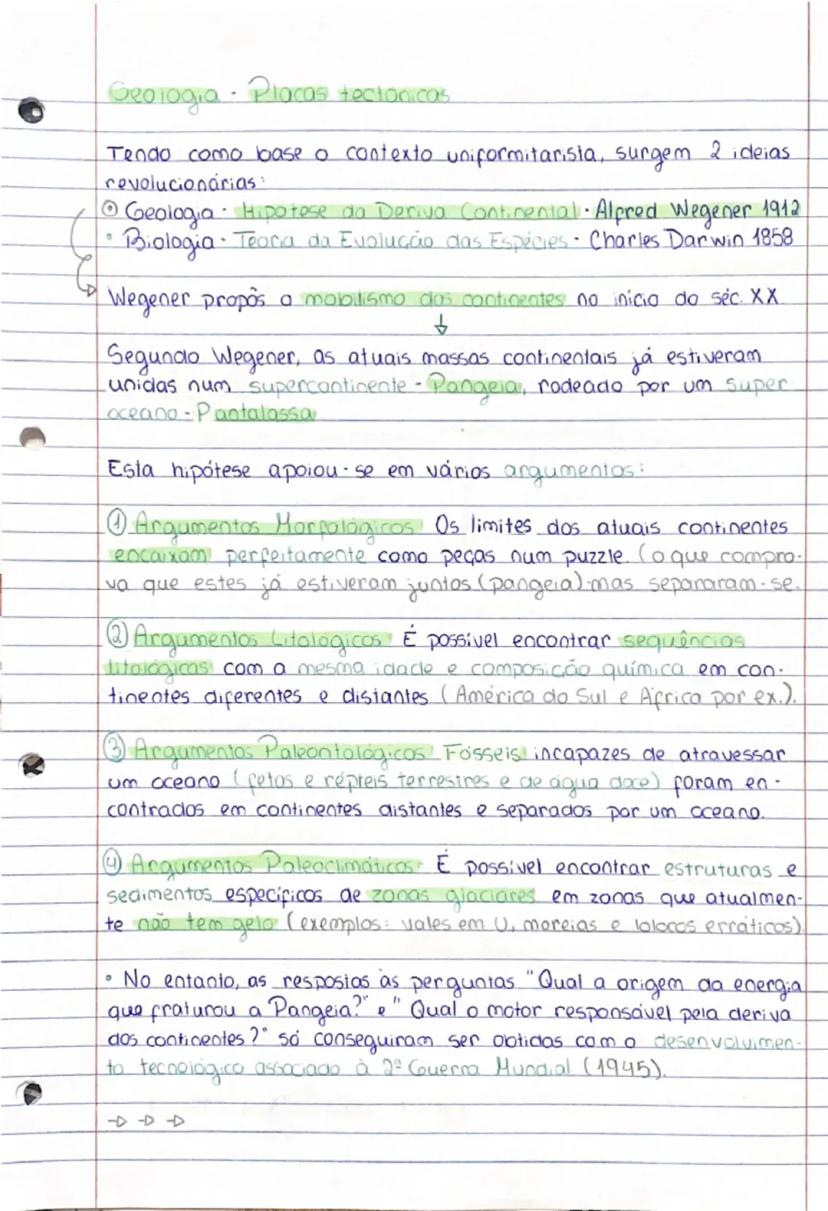 Geologia - Placas tectónicas
Tendo como base o contexto uniformitarista, surgem 2 ideias
revolucionárias:
Geologia - Hipótese da Deriva Continental - Alfred Wegener 1912
• Biologia - Teoria da Evolução das Espécies - Charles Darwin 1858
Wegener propôs o mobilismo dos continentes no início do séc. XX
↓
Segundo Wegener, as atuais massas continentais já estiveram
unidas num supercontinente - Pangeia, rodeado por um super
oceano - Pantalassa
Esta hipótese apoiou-se em vários argumentos:
① Argumentos Morfológicos Os limites dos atuais continentes
encaixam perfeitamente como peças num puzzle. (o que compro-
va que estes já estiveram juntos (pangeia) mas separaram-se.
② Argumentos Litológicos É possível encontrar sequências
litológicas com a mesma idade e composição química em con-
tinentes diferentes e distantes (América do Sul e África por ex.).
③ Argumentos Paleontológicos Fósseis incapazes de atravessar
um oceano (fetos e répteis terrestres e de água doce) foram en-
contrados em continentes distantes e separados por um oceano.
④ Argumentos Paleoclimáticos É possível encontrar estruturas e
sedimentos específicos de zonas glaciares em zonas que atualmen-
te não tem gelo (exemplos: vales em U, moreias e blocos erráticos)
• No entanto, as respostas às perguntas "Qual a origem da energia
que fraturou a Pangeia?" e "Qual o motor responsável pela deriva
dos continentes?" só conseguiram ser obtidas com o desenvolvimen-
to tecnológico associado à 2ª Guerra Mundial (1945).
→ → →